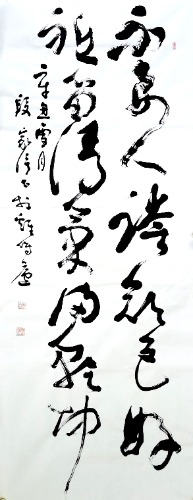 不要人誇顔色好
祇留清氣滿乾坤
辛丑雪月
段